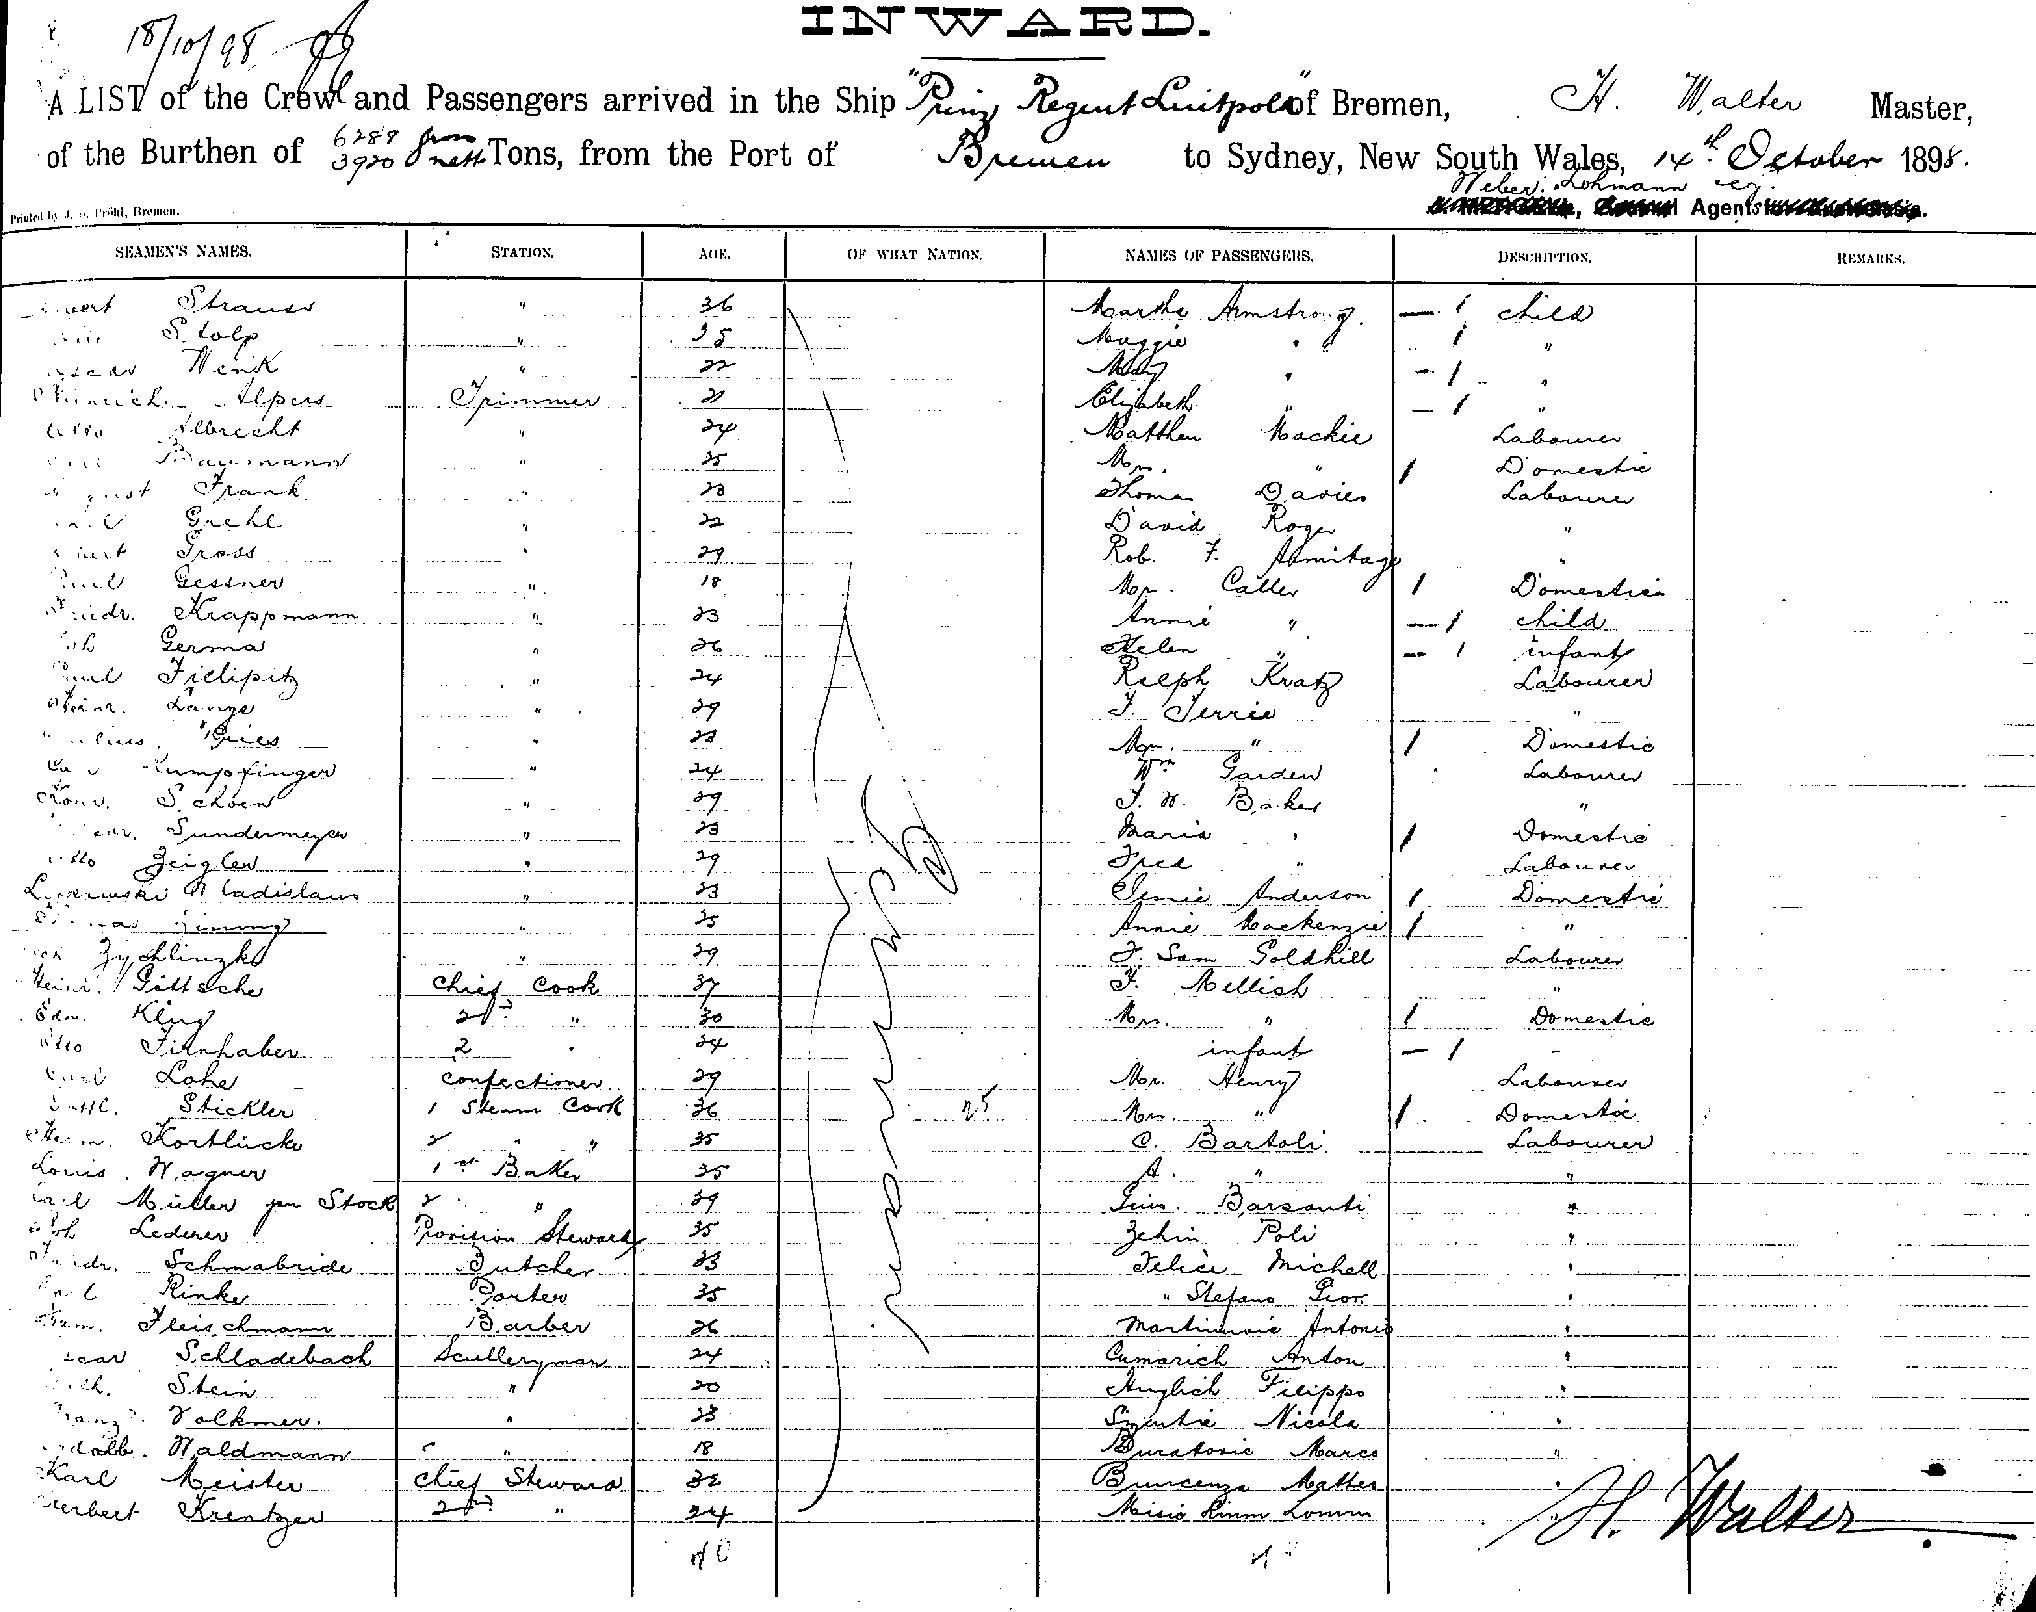 INWARD.
18/10/98
A LIST of the Crew and Passengers arrived in the Ship "Prinz Regent Luitpold" of Bremen, H. Walter Master,
of the Burthen of 6288 gross 3920 nett Tons, from the Port of Bremen to Sydney, New South Wales, 14th October 1898.
Weber, Lohmann
Agents
Printed by J. Bremen.
SEAMEN'S NAMES. STATION. AGE. OF WHAT NATION. NAMES OF PASSENGERS. DESCRIPTION. REMARKS.
Strauss " 36 Martha Armstrong. — 1 child
Stolp " 35 Maggie " 1 "
Wenk " 22 May " — 1 "
Heinrich Alpers Trimmer 21 Elizabeth " — 1 "
Otto Albrecht " 24 Matthew Mackie Labourer
Baumann " 25 Mrs. " 1 Domestic
August Frank " 23 Thomas Davies Labourer
Grehl " 22 David Roger "
Gross " 29 Rob. F. Armitage "
Paul Gessner " 18 Mrs. Catter 1 Domestic
Friedr. Krappmann " 23 Annie " — 1 child
Germa " 26 Helen " — 1 infant
Paul Fillipitz " 24 Ralph Kratz Labourer
Heinr. Lange " 29 F. Terrie "
Gries " 23 Mrs. " 1 Domestic
Rumpfinger " 24 Wm Garden Labourer
Konr. Schoen " 29 F. W. Baker "
Sundermeyer " 23 Maria " 1 Domestic
Otto Zeigler " 29 Fred " Labourer
Wladislaus " 23 Jennie Anderson 1 Domestic
" 25 Annie Mackenzie 1 "
Zychlinzki " 29 F. Sam Goldhill Labourer
Heinr. Göttsche Chief Cook 37 F. Mellish "
Edm. Klug 2nd " 30 Mrs. " 1 Domestic
Otto Firnhaber 2 " 24 infant — 1
Carl Lohe Confectioner 29 Mr. Henry Labourer
Stickler 1 Steam Cook 36 Mrs. " 1 Domestic
Herm. Kortlücke 2 " " 35 C. Bartoli Labourer
Louis Wagner 1st Baker 25 A. " "
Carl Müller gen Stock 2 " 29 Barsanti "
Lederer Provision Steward 35 Poli "
Friedr. Schmabride Butcher 23 Felice Michell "
Rinke Porter 35 " Stefano Giov. "
Herm. Fleischmann Barber 26 Martinovic Antonio "
Oscar Schladebach Sculleryman 24 Cumarich Anton "
Stein " 20 Filippo "
Franz Volkmer. " 23 Nicola "
Waldmann " 18 Marco "
Karl Meister Chief Steward 32
Herbert Krentzer 2nd " 24
German
H. Walter